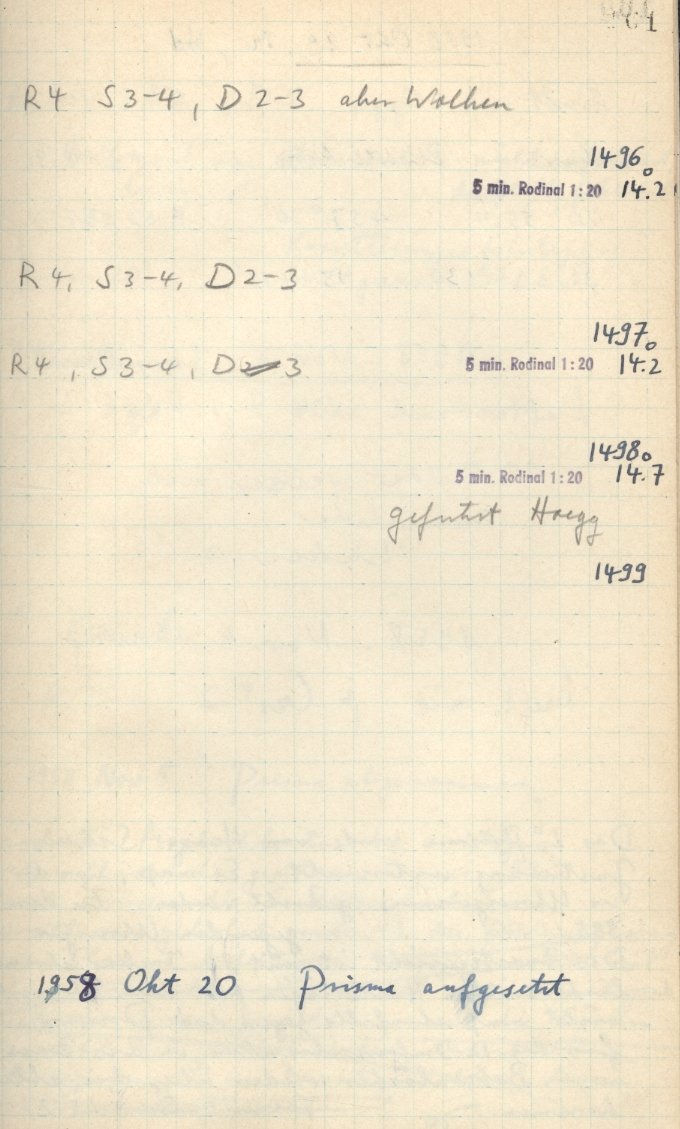 61
R4 S3-4, D2-3 aber Wolken
1496
5 min. Rodinal 1:20 14.2
R4, S3-4, D2-3
1497
R4, S3-4, D 3 5 min. Rodinal 1:20 14.2
1498
5 min. Rodinal 1:20 14.7
geführt Hoegg
1499
1958 Okt 20 Prisma aufgesetzt